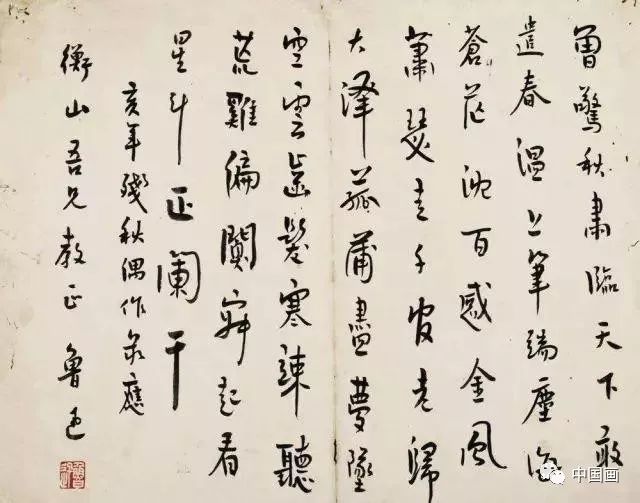 曾驚秋肅臨天下敢
遣春溫上筆端塵海
蒼茫沈百感金風
蕭瑟走千官老歸
大澤菰蒲盡夢墜
空雲齒髮寒竦聽
荒雞偏闃寂起看
星斗正闌干
亥年殘秋偶作录應
衡山吾兄教正 魯迅
魯迅
中国画